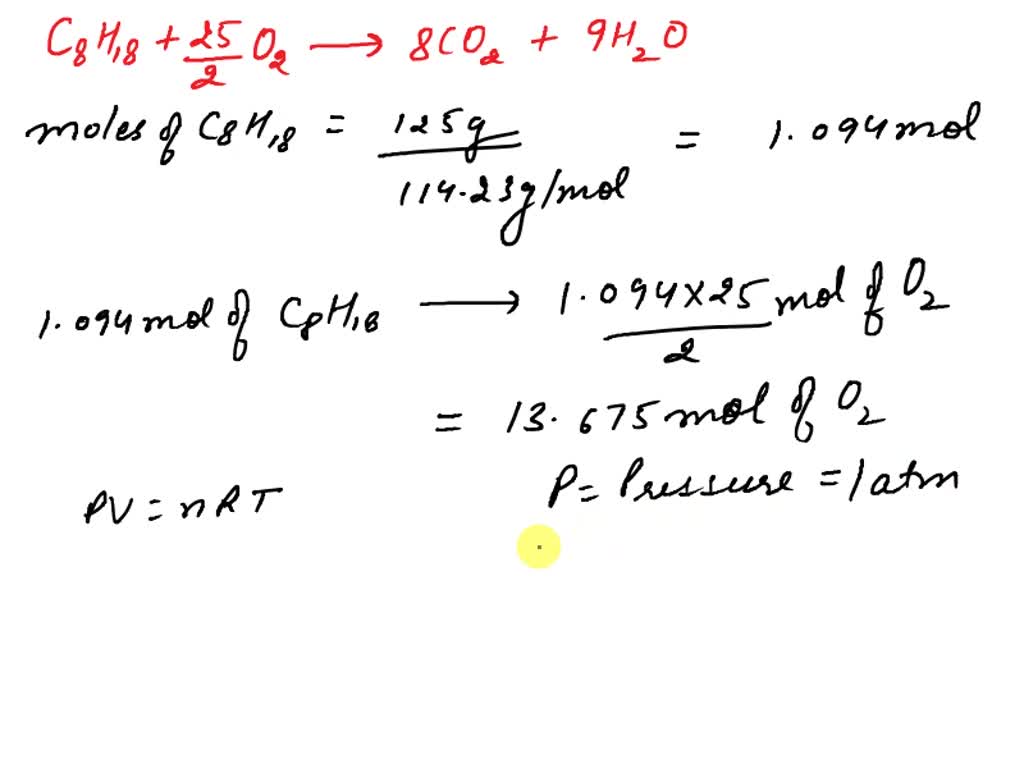 C₈H₁₈ + 25/2 O₂ ⟶ 8CO₂ + 9H₂O
moles of C₈H₁₈ = 125g / 114.23g/mol = 1.094 mol
1.094 mol of C₈H₁₈ ⟶ 1.094×25 / 2 mol of O₂
= 13.675 mol of O₂
PV = nRT P = Pressure = 1 atm